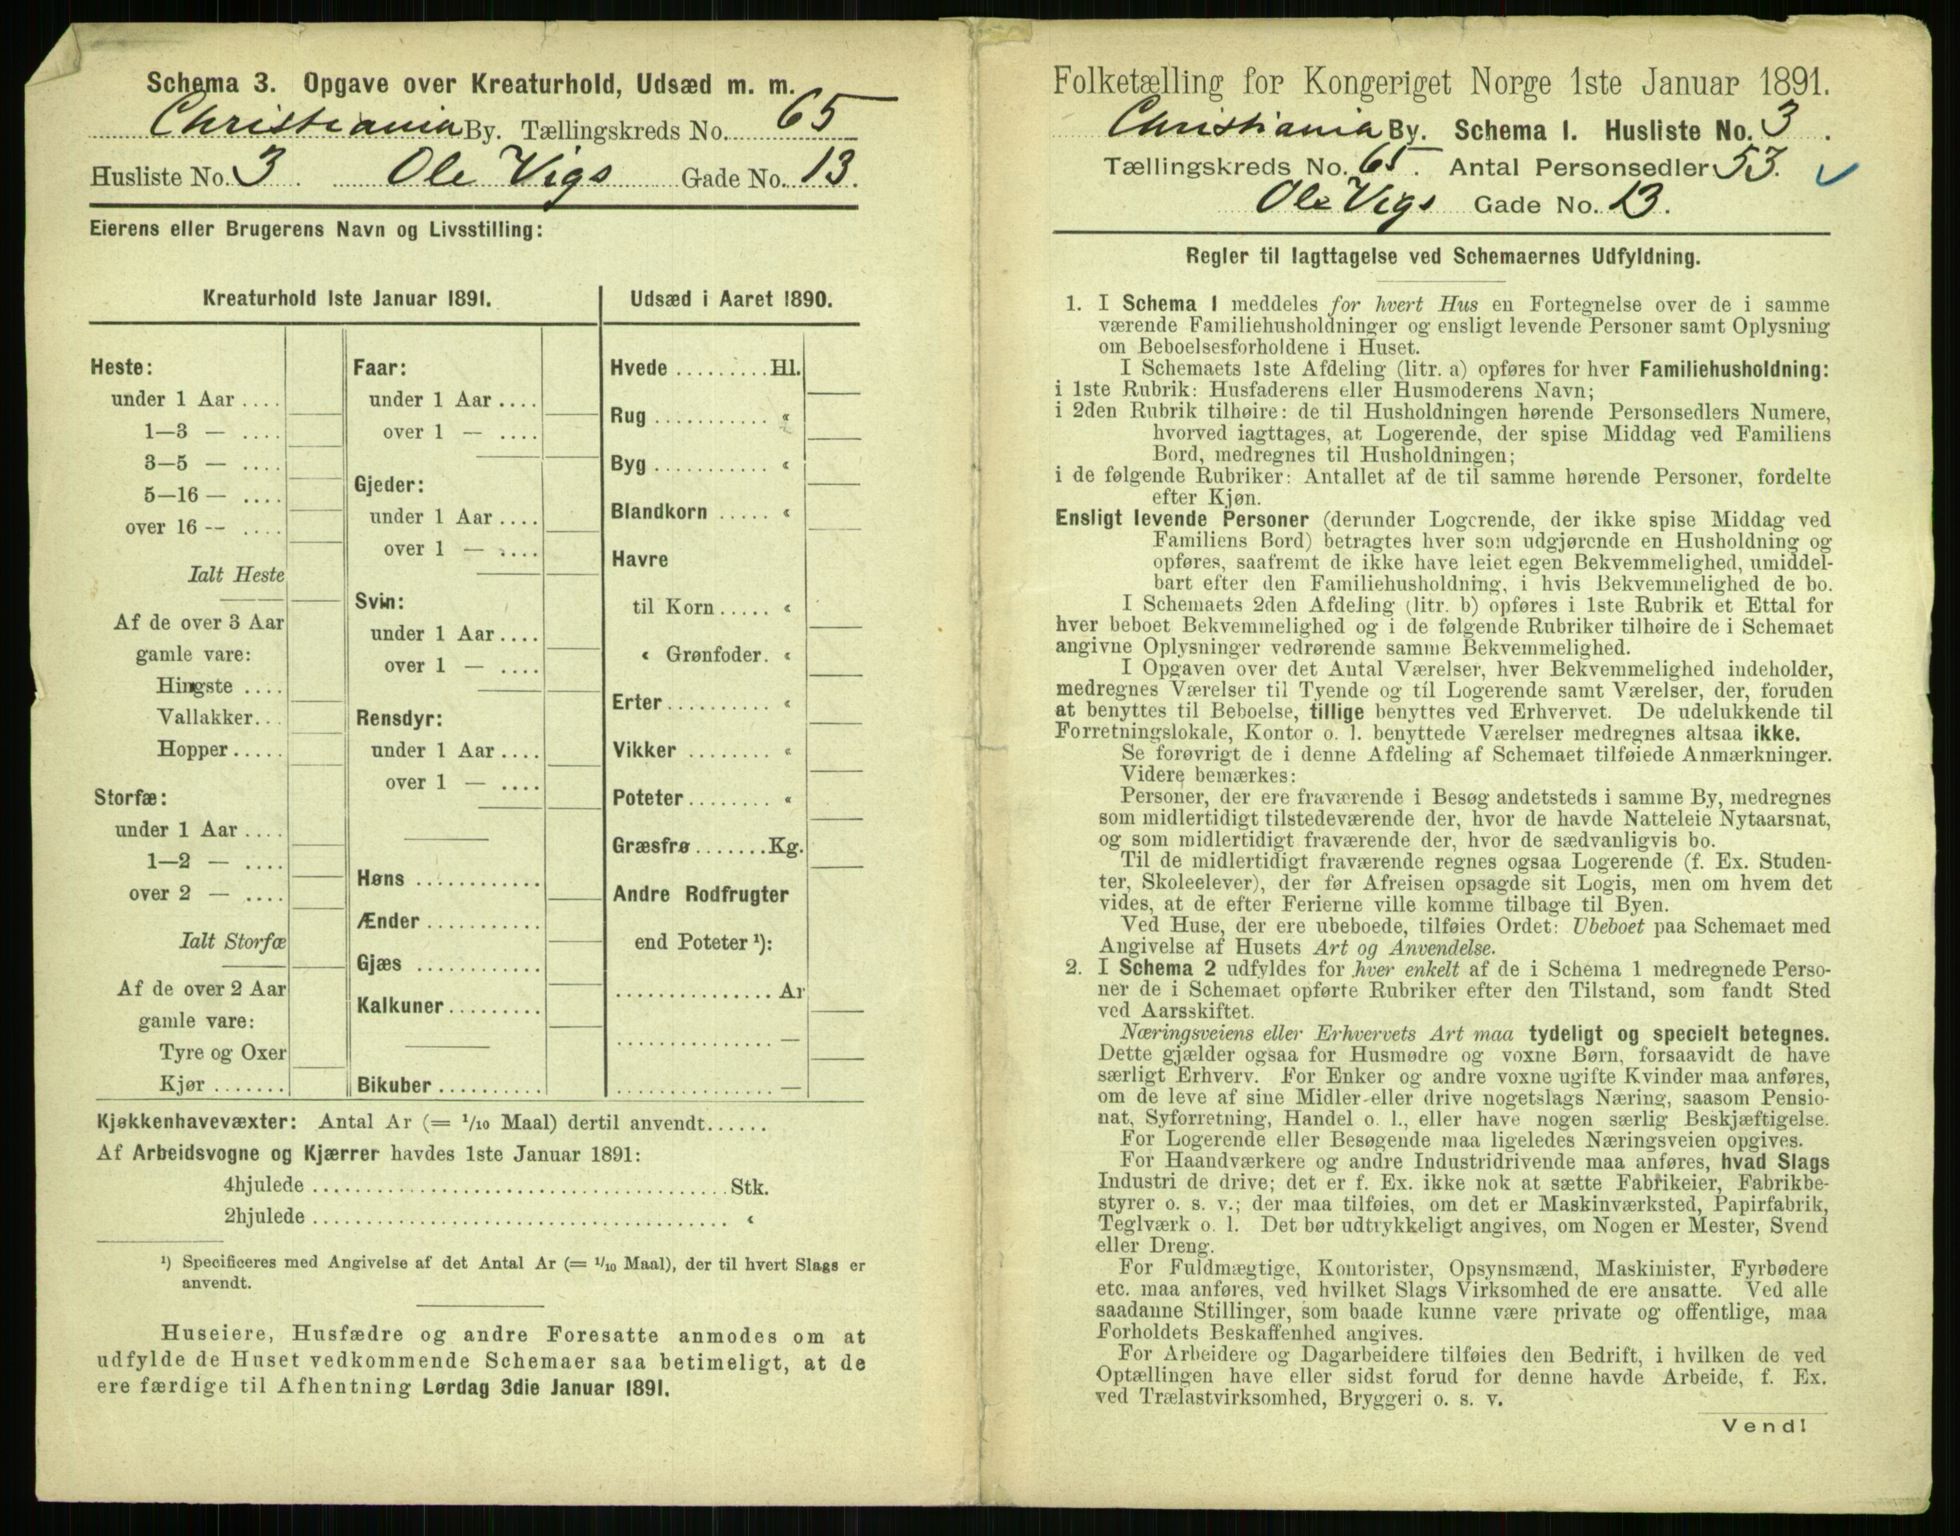 Schema 3. Opgave over Kreaturhold, Udsæd m. m.
Christiania By. Tællingskreds No. 65
Husliste No. 3. Ole Vigs Gade No. 13.
Eierens eller Brugerens Navn og Livsstilling:
Kreaturhold 1ste Januar 1891.
Heste:
under 1 Aar....
1—3 — ....
3—5 — ....
5—16 — ....
over 16 — ....
Ialt Heste
Af de over 3 Aar
gamle vare:
Hingste ....
Vallakker...
Hopper.....
Storfæ:
under 1 Aar....
1—2 — ....
over 2 — ....
Ialt Storfæ
Af de over 2 Aar
gamle vare:
Tyre og Oxer
Kjør.......
Faar:
under 1 Aar....
over 1 — ....
Gjeder:
under 1 Aar....
over 1 — ....
Svin:
under 1 Aar....
over 1 — ....
Rensdyr:
under 1 Aar....
over 1 — ....
Høns............
Ænder...........
Gjæs............
Kalkuner.........
Bikuber..........
Udsæd i Aaret 1890.
Hvede.........Hl.
Rug........... «
Byg........... «
Blandkorn..... «
Havre
til Korn..... «
« Grønfoder. «
Erter.......... «
Vikker........ «
Poteter........ «
Græsfrø.......Kg.
Andre Rodfrugter
end Poteter ¹):
............... Ar
............... —
............... —
Kjøkkenhavevæxter: Antal Ar (= 1/10 Maal) dertil anvendt......
Af Arbeidsvogne og Kjærrer havdes 1ste Januar 1891:
4hjulede........................................Stk.
2hjulede........................................ «
¹) Specificeres med Angivelse af det Antal Ar (= 1/10 Maal), der til hvert Slags er
anvendt.
Huseiere, Husfædre og andre Foresatte anmodes om at
udfylde de Huset vedkommende Schemaer saa betimeligt, at de
ere færdige til Afhentning Lørdag 3die Januar 1891.
Folketælling for Kongeriget Norge 1ste Januar 1891.
Christiania By. Schema 1. Husliste No. 3.
Tællingskreds No. 65. Antal Personsedler 53.
Ole Vigs Gade No. 13.
Regler til Iagttagelse ved Schemaernes Udfyldning.
1. I Schema 1 meddeles for hvert Hus en Fortegnelse over de i samme
værende Familiehusholdninger og ensligt levende Personer samt Oplysning
om Beboelsesforholdene i Huset.
I Schemaets 1ste Afdeling (litr. a) opføres for hver Familiehusholdning:
i 1ste Rubrik: Husfaderens eller Husmoderens Navn;
i 2den Rubrik tilhøire: de til Husholdningen hørende Personsedlers Numere,
hvorved iagttages, at Logerende, der spise Middag ved Familiens
Bord, medregnes til Husholdningen;
i de følgende Rubriker: Antallet af de til samme hørende Personer, fordelte
efter Kjøn.
Ensligt levende Personer (derunder Logerende, der ikke spise Middag ved
Familiens Bord) betragtes hver som udgjørende en Husholdning og
opføres, saafremt de ikke have leiet egen Bekvemmelighed, umiddel-
bart efter den Familiehusholdning, i hvis Bekvemmelighed de bo.
I Schemaets 2den Afdeling (litr. b) opføres i 1ste Rubrik et Ettal for
hver beboet Bekvemmelighed og i de følgende Rubriker tilhøire de i Schemaet
angivne Oplysninger vedrørende samme Bekvemmelighed.
I Opgaven over det Antal Værelser, hver Bekvemmelighed indeholder,
medregnes Værelser til Tyende og til Logerende samt Værelser, der, foruden
at benyttes til Beboelse, tillige benyttes ved Erhvervet. De udelukkende til
Forretningslokale, Kontor o. l. benyttede Værelser medregnes altsaa ikke.
Se forøvrigt de i denne Afdeling af Schemaet tilføiede Anmærkninger.
Videre bemærkes:
Personer, der ere fraværende i Besøg andetsteds i samme By, medregnes
som midlertidigt tilstedeværende der, hvor de havde Natteleie Nytaarsnat,
og som midlertidigt fraværende der, hvor de sædvanligvis bo.
Til de midlertidigt fraværende regnes ogsaa Logerende (f. Ex. Studen-
ter, Skoleelever), der før Afreisen opsagde sit Logis, men om hvem det
vides, at de efter Ferierne ville komme tilbage til Byen.
Ved Huse, der ere ubeboede, tilføies Ordet: Ubeboet paa Schemaet med
Angivelse af Husets Art og Anvendelse.
2. I Schema 2 udfyldes for hver enkelt af de i Schema 1 medregnede Perso-
ner de i Schemaet opførte Rubriker efter den Tilstand, som fandt Sted
ved Aarsskiftet.
Næringsveiens eller Erhvervets Art maa tydeligt og specielt betegnes.
Dette gjælder ogsaa for Husmødre og voxne Børn, forsaavidt de have
særligt Erhverv. For Enker og andre voxne ugifte Kvinder maa anføres,
om de leve af sine Midler eller drive nogetslags Næring, saasom Pensio-
nat, Syforretning, Handel o. l., eller have nogen særlig Beskjæftigelse.
For Logerende eller Besøgende maa ligeledes Næringsveien opgives.
For Haandværkere og andre Industridrivende maa anføres, hvad Slags
Industri de drive; det er f. Ex. ikke nok at sætte Fabrikeier, Fabrikbe-
styrer o. s. v.; der maa tilføies, om det er Maskinværksted, Papirfabrik,
Teglværk o. l. Det bør udtrykkeligt angives, om Nogen er Mester, Svend
eller Dreng.
For Fuldmægtige, Kontorister, Opsynsmænd, Maskinister, Fyrbødere
etc. maa anføres, ved hvilket Slags Virksomhed de ere ansatte. Ved alle
saadanne Stillinger, som baade kunne være private og offentlige, maa
Forholdets Beskaffenhed angives.
For Arbeidere og Dagarbeidere tilføies den Bedrift, i hvilken de ved
Optællingen have eller sidst forud for denne havde Arbeide, f. Ex.
ved Trælastvirksomhed, Bryggeri o. s. v.
Vend!